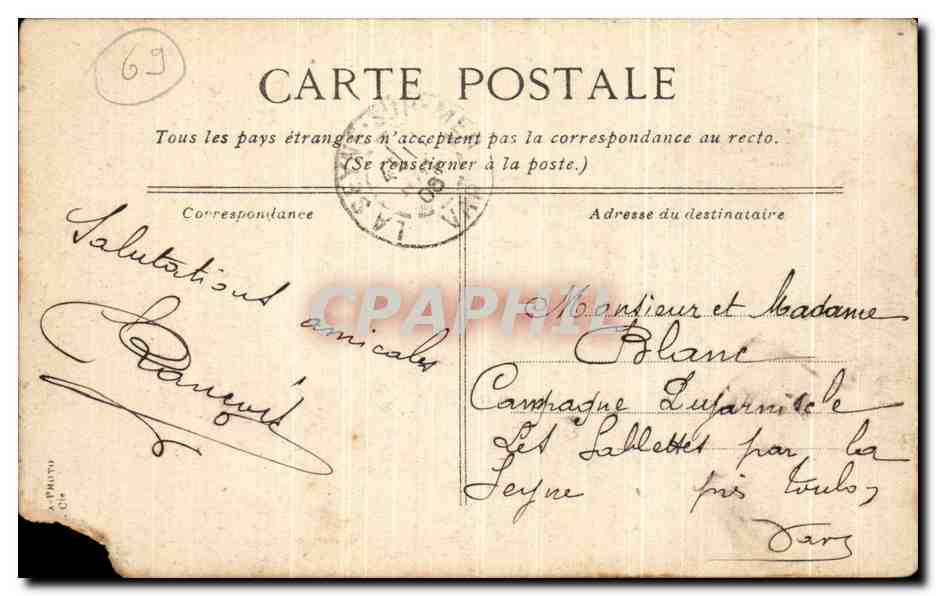 69
CARTE POSTALE
Tous les pays étrangers n'acceptent pas la correspondance au recto.
(Se renseigner à la poste.)
Correspondance
Adresse du destinataire
LA SEYNE-SUR-MER VAR
08
Salutations
amicales
CPAPHIL
Monsieur et Madame
Blanc
Campagne
Les Sablettes par la
Seyne près Toulon
Var
A-PHOTO
Cie